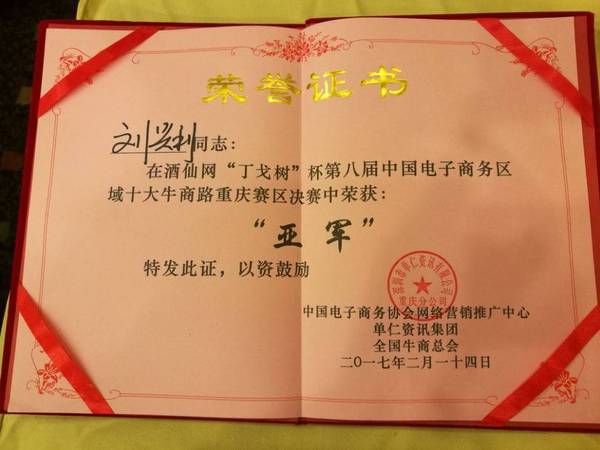 荣誉证书
刘兴利同志：
在酒仙网“丁戈树”杯第八届中国电子商务区
域十大牛商路重庆赛区决赛中荣获：
“亚军”
特发此证，以资鼓励
深圳市单仁资讯有限公司
重庆分公司
中国电子商务协会网络营销推广中心
单仁资讯集团
全国牛商总会
二〇一七年二月一十四日